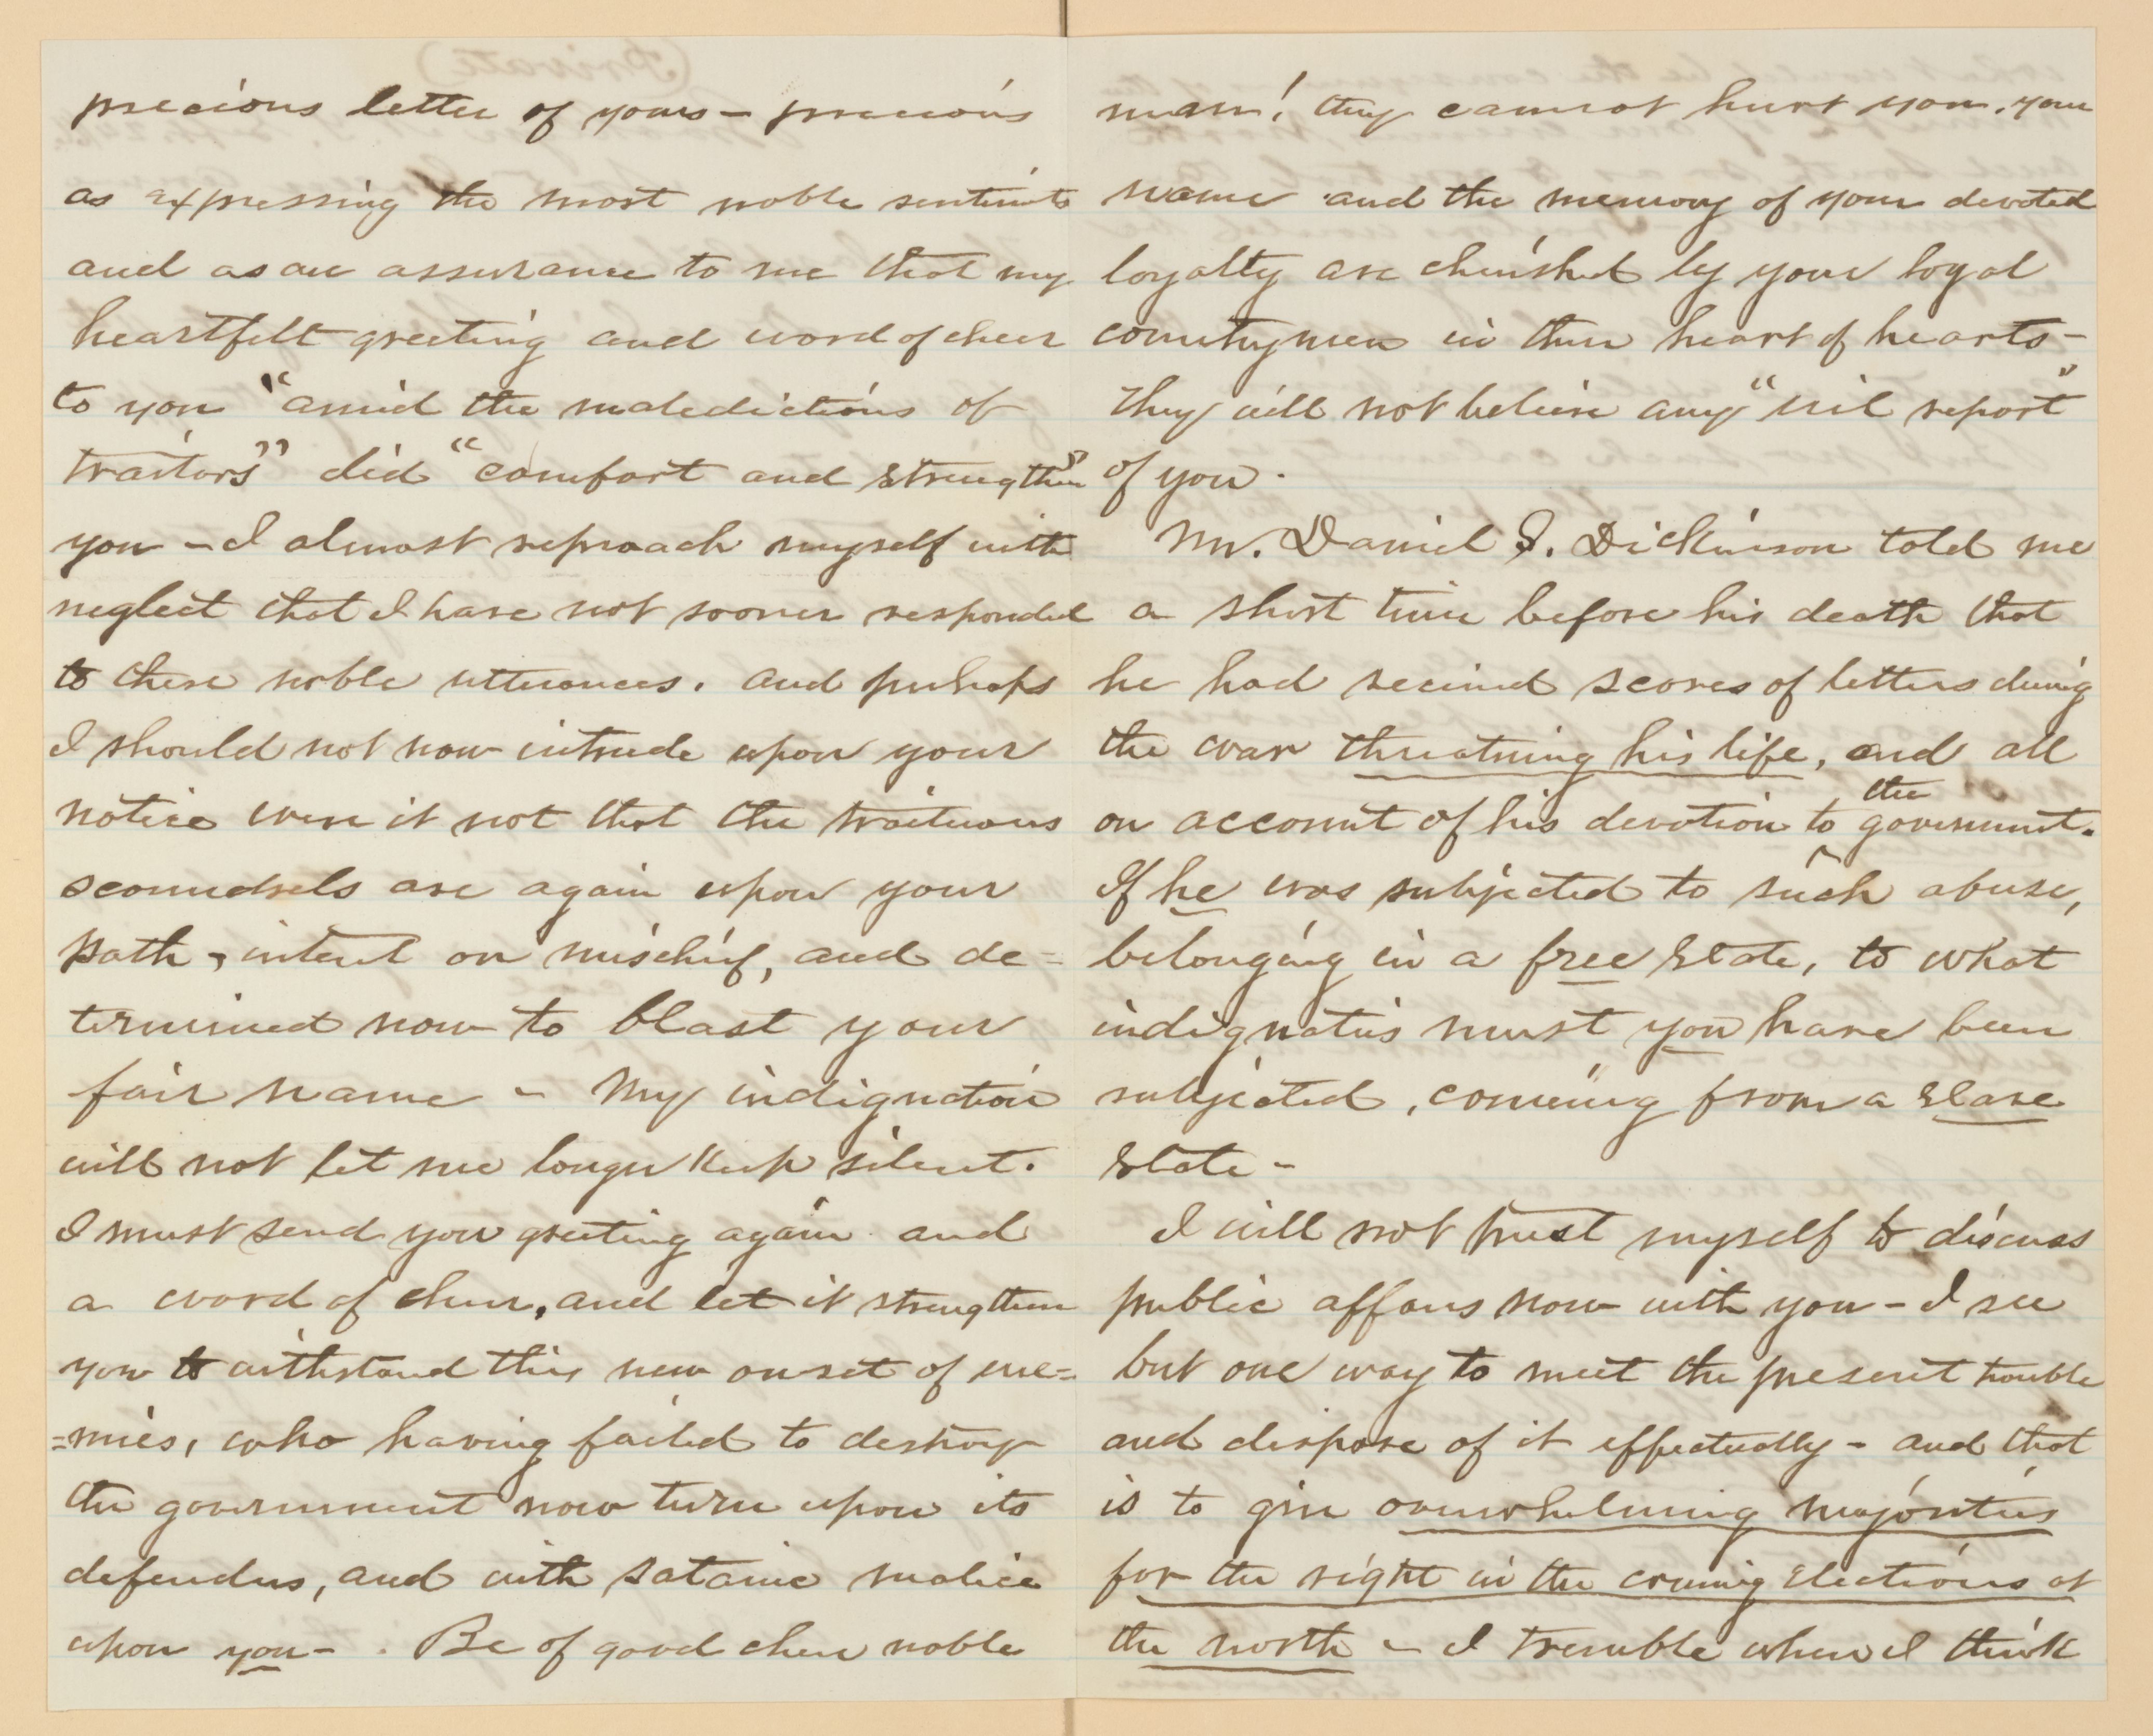 precious letter of yours – precious
as expressing the most noble sentimts
and as an assurance to me that my
heartfelt greeting and word of cheer
to you "amid the maledictions of
traitors" did "comfort and strengthen"
you – I almost reproach myself with
neglect that I have not sooner responded
to these noble utterances. and perhaps
I should not now intrude upon your
notice were it not that the traitorous
scoundrels are again upon your
path, intent on mischief, and de=
termined now to blast your
fair name – My indignation
will not let me longer keep silent.
I must send you greeting again and
a word of cheer, and let it strengthen
you to withstand this new onset of ene=
=mies, who having failed to destroy
the government now turn upon its
defenders, and with satanic malice
upon you – . Be of good cheer noble
man! they cannot hurt you. your
name and the memory of your devoted
loyalty are cherished by your loyal
countrymen in their heart of hearts –
They will not believe any "evil report"
of you.
Mr. Daniel S. Dickinson told me
a short time before his death that
he had received scores of letters during
the war threatning his life, and all
on account of his devotion to the government.
If he was subjected to such abuse,
belonging in a free State, to what
indignaties must you have been
subjected, comeing from a slave
State –
I will not trust myself to discuss
public affairs now with you – I see
but one way to meet the present trouble
and dispose of it effectually – and that
is to give overwhelming majorities
for the right in the coming elections at
the north – I tremble when I think